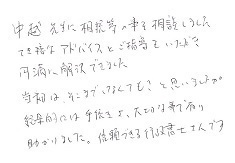 中越先生に相続等の事を相談しました
て適なアドバイスとご指導をいただき
円満に解決できました
当初は、そこまでしなくても?と思いましたが
結果的には手続きよ、大切な事であり
助かりました。信頼できる行政書士さんです